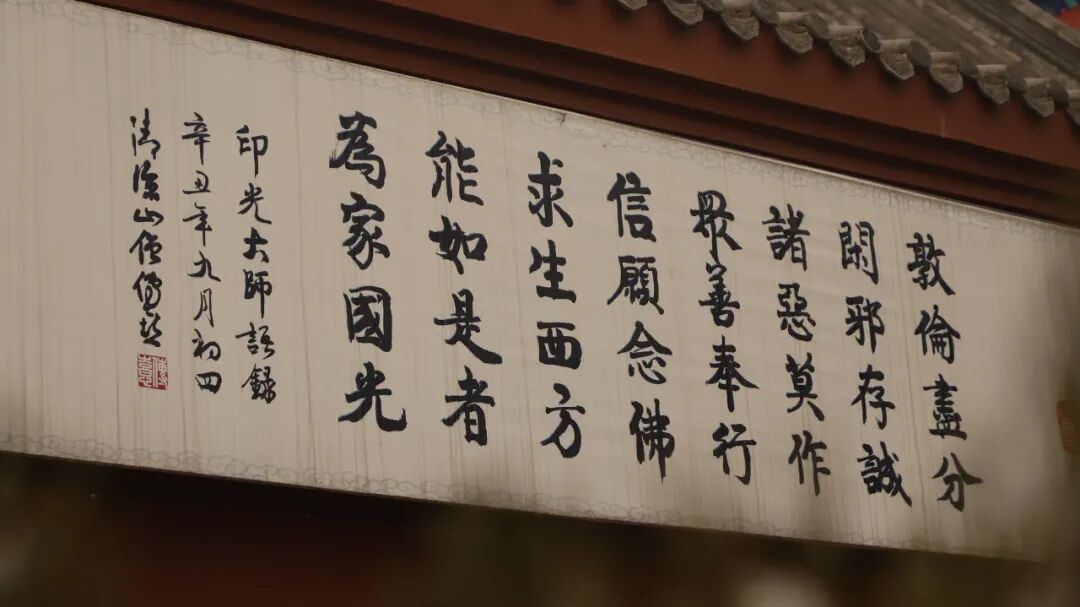 敦倫盡分
閑邪存誠
諸惡莫作
眾善奉行
信願念佛
求生西方
能如是者
為家國光
印光大師語錄
辛丑年九月初四
清涼山僧傳喜